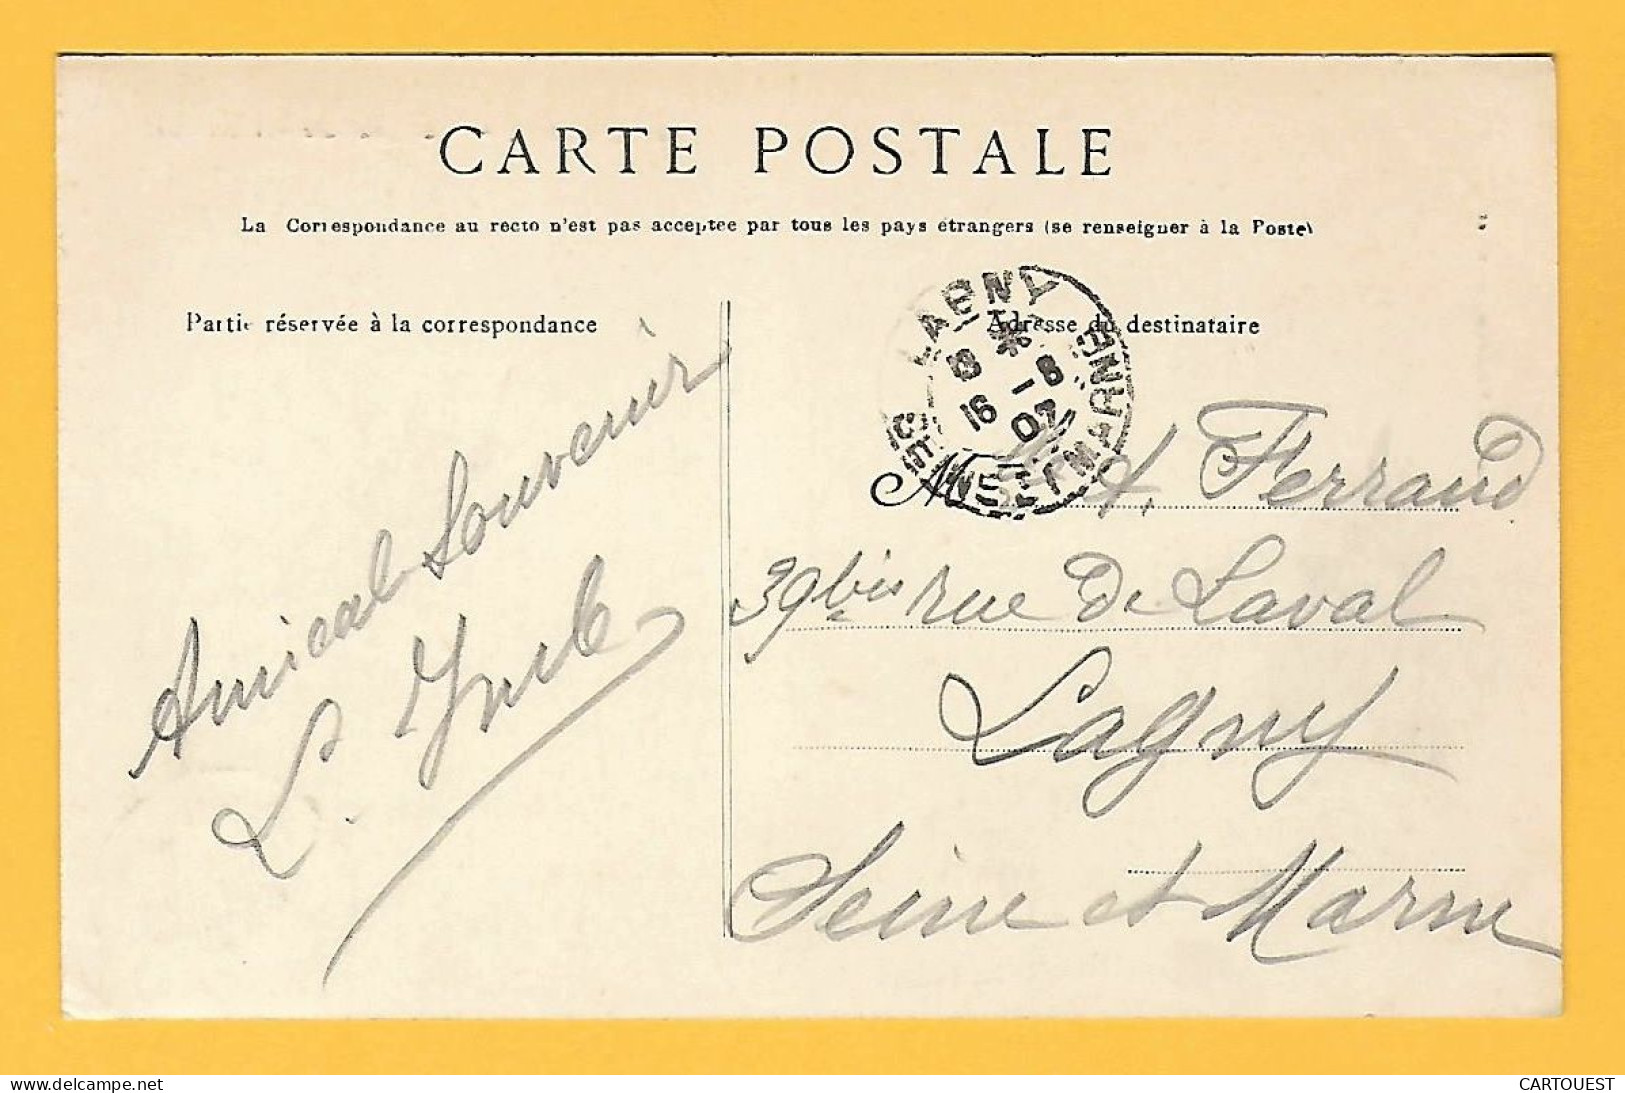 CARTE POSTALE
La Correspondance au recto n'est pas acceptee par tous les pays étrangers (se renseigner à la Poste)
Partie réservée à la correspondance
Adresse du destinataire
LAGNY
8 * 
16 -8
07
SEINE-ET-MARNE
Amical Souvenir
L.
M A. Ferrand
39 bis rue De Laval
Lagny
Seine et Marne
www.delcampe.net
CARTOUEST